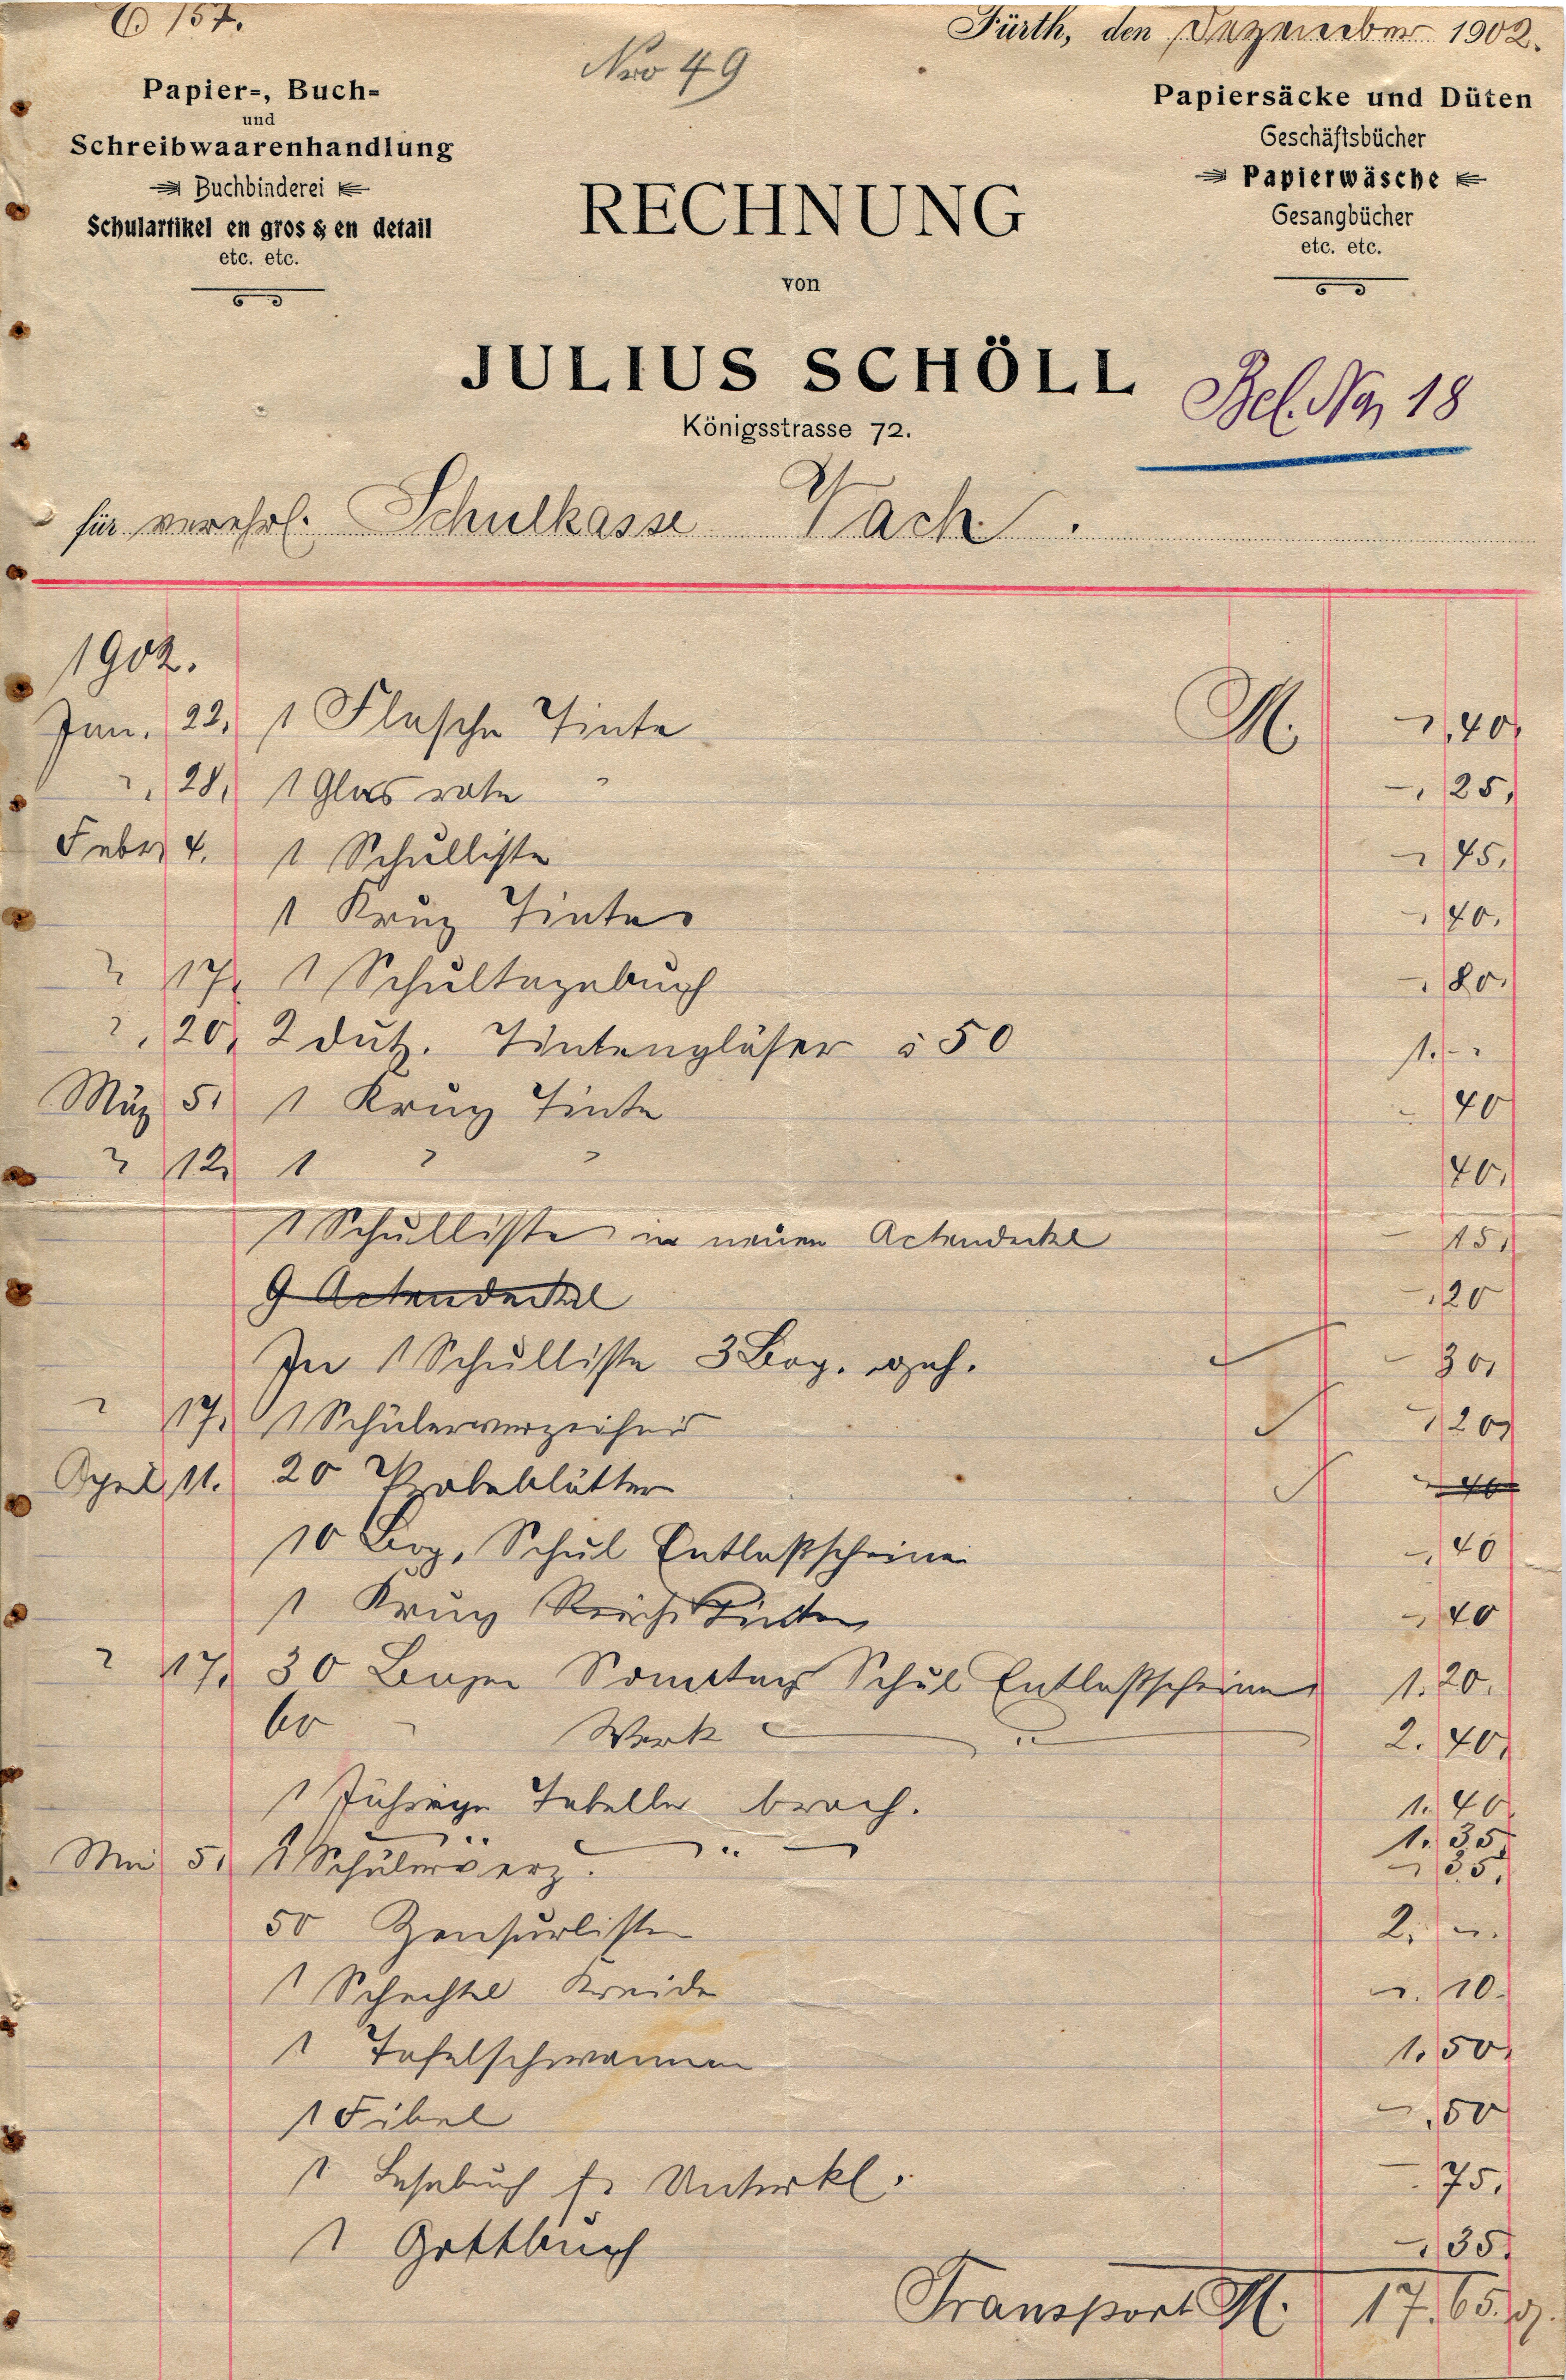 157.
Nro 49
Fürth, den Dezember 1902.
Papier-, Buch-
und
Schreibwaarenhandlung
Buchbinderei
Schulartikel en gros & en detail
etc. etc.
Papiersäcke und Düten
Geschäftsbücher
Papierwäsche
Gesangbücher
etc. etc.
RECHNUNG
von
JULIUS SCHÖLL
Königsstrasse 72.
Bel. No 18
für verehrl. Schulkasse Vach.
1902.
Jan. 22. 1 Flasche Tinte M. -,40.
" 28. 1 Glas rote " -,25,
Febr. 4. 1 Schulliste - 45.
1 Krug Tinte - 40.
" 17. 1 Schultagebuch -,80.
" 20. 2 dutz. Tintengläser à 50 1.--
März 5. 1 Krug Tinte - 40
" 12. 1 " " 40.
1 Schulliste in neuen Actendeckel - 15,
9 Actendeckel -,20
In 1 Schulliste 3 Bog. geh. - 30,
" 17. 1 Schülerverzeichnis - 20
April 11. 20 Probeblätter
10 Bog. Schul Entlaßscheine -,40
1 Krug Tinte - 40
" 17. 30 Bogen Sonntag Schul Entlaßscheine 1.20.
60 " Werk " 2.40,
1 Jährige Tabelle broch. 1.40
1.35
Mai 5. 1 Schülerverz. " - 35.
50 Zensurlisten 2.-.
1 Schachtel Kreide -.10.
1 Tafelschwamm 1.50,
1 Fibel -,50
1 Lesebuch f. Unterkl. - 75.
1 Gottbüch -,35.
Transport M. 17.65.